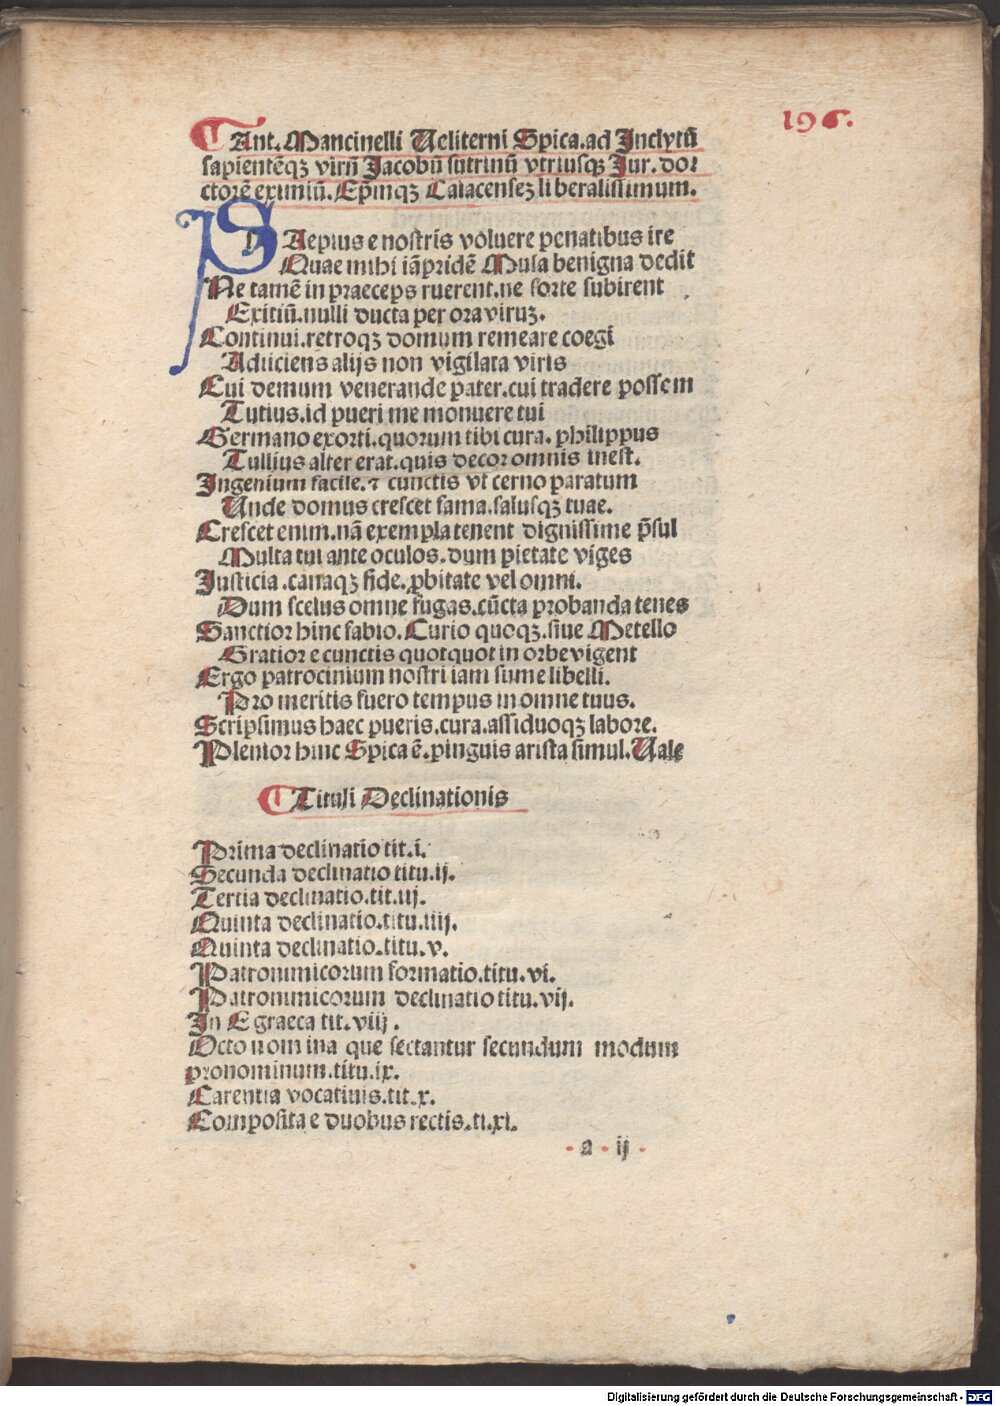 196.
Ant. Mancinelli Ueliterni Spica. ad Inclytū
sapientēqꝫ virū Jacobū sutrinū vtriusqꝫ Jur. do⁊
ctorē eximiū. Ep̄mqꝫ Caiacenseꝫ liberalissimum.
SAepius e nostris voluere penatibus ire
Quae mihi iāpridē Musa benigna dedit
Ne tamē in praeceps ruerent. ne sorte subirent
Exitiū. nulli ducta per ora viruꝫ.
Continui. retroqꝫ domum remeare coegi
Adiiciens alijs non vigilata viris
Cui demum venerande pater. cui tradere possem
Tutius. id pueri me monuere tui
Germano exorti. quorum tibi cura. philippus
Tullius alter erat. quis decor omnis inest.
Ingenium facile. ⁊ cunctis vt cerno paratum
Unde domus crescet fama. salusqꝫ tuae.
Crescet enim. nā exempla tenent dignissime p̄sul
Multa tui ante oculos. dum pietate viges
Justicia. canaqꝫ fide. ꝓbitate vel omni.
Dum scelus omne fugas. cūcta probanda tenes
Sanctior hinc fabio. Curio quoqꝫ. siue Metello
Gratior e cunctis quotquot in orbe vigent
Ergo patrocinium nostri iam sume libelli.
Pro meritis fuero tempus in omne tuus.
Scripsimus haec pueris. cura. assiduoqꝫ labore.
Plenior hinc Spica ē. pinguis arista simul. Uale
Tituli Declinationis
Prima declinatio tit. i.
Secunda declinatio titu. ij.
Tertia declinatio. tit. iij.
Quinta declinatio. titu. iiij.
Quinta declinatio. titu. v.
Patronimicorum formatio. titu. vi.
Patronimicorum declinatio titu. vij.
In E graeca tit. viij.
Octo nomina que sectantur secundum modum
pronominum. titu. ix.
Carentia vocatiuis. tit. x.
Composita e duobus rectis. ti. xi.
a ij
Digitalisierung gefördert durch die Deutsche Forschungsgemeinschaft - DFG